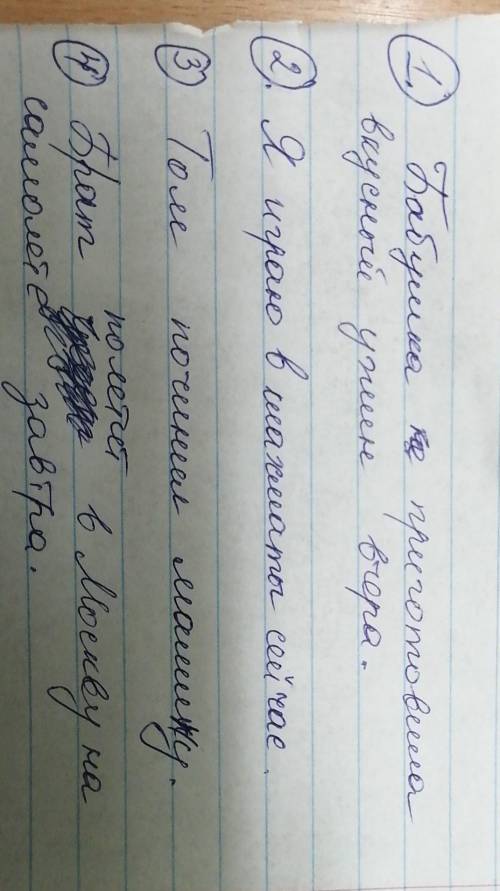 1. Бабушка приготовила
вкусный ужин вчера.
2. Я играю в шахматы сейчас.
3 Толе починил машину.
4 Брат полетит в Москву на
самолете завтра.